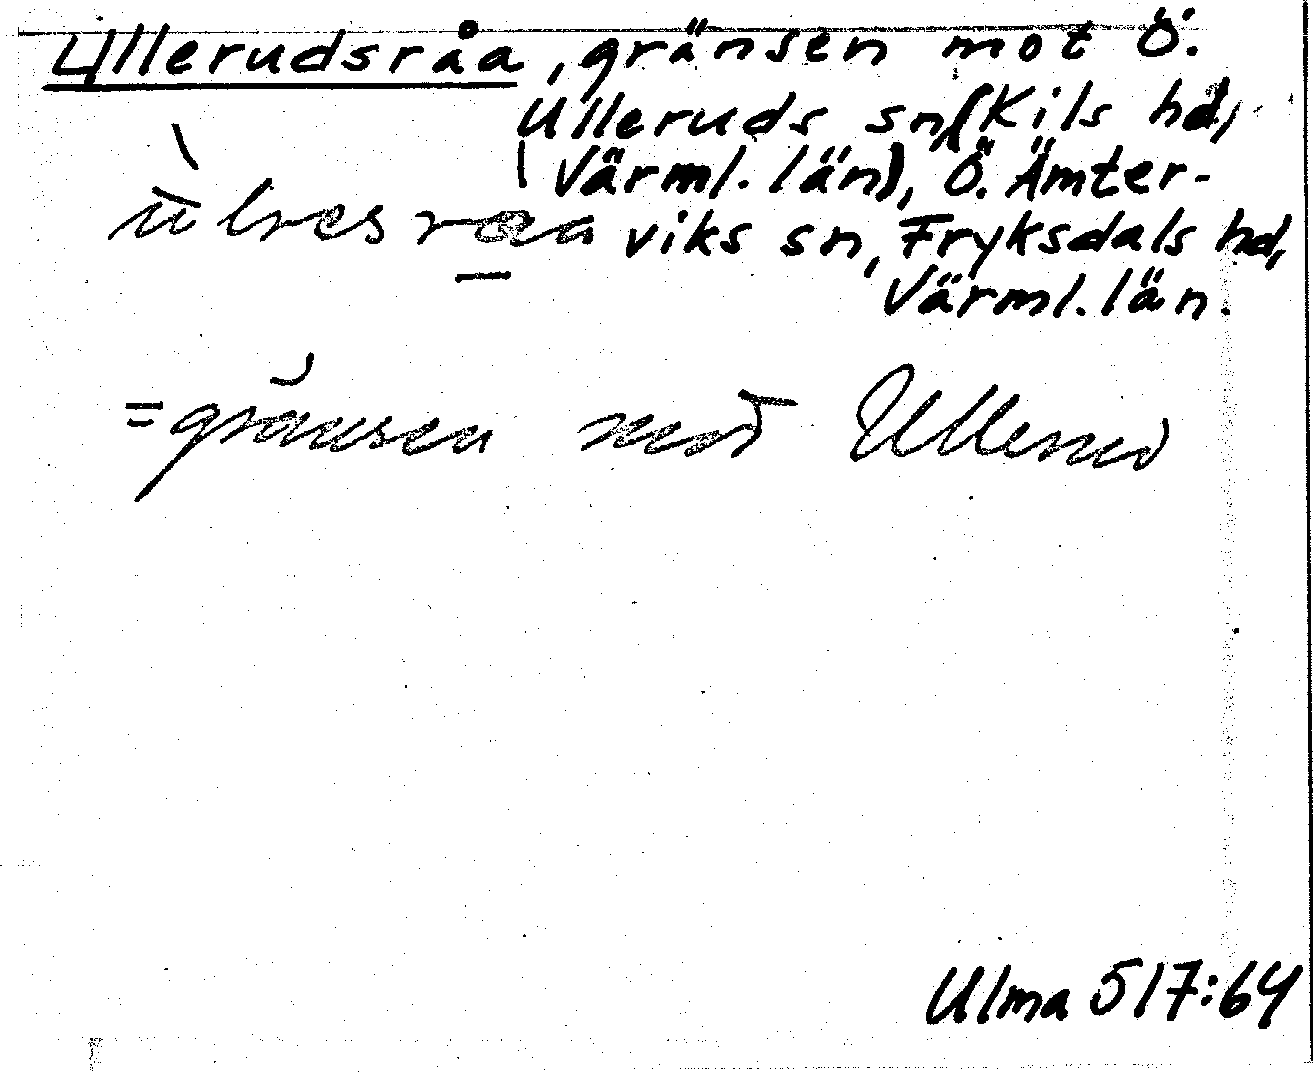 Ullerudsråa, gränsen mot Ö.
Ulleruds sn (Kils hd,
Värml. län), Ö. Ämter-
viks sn, Fryksdals hd,
Värml. län.
= gränsen mot Ullerud
Ulma 517:64